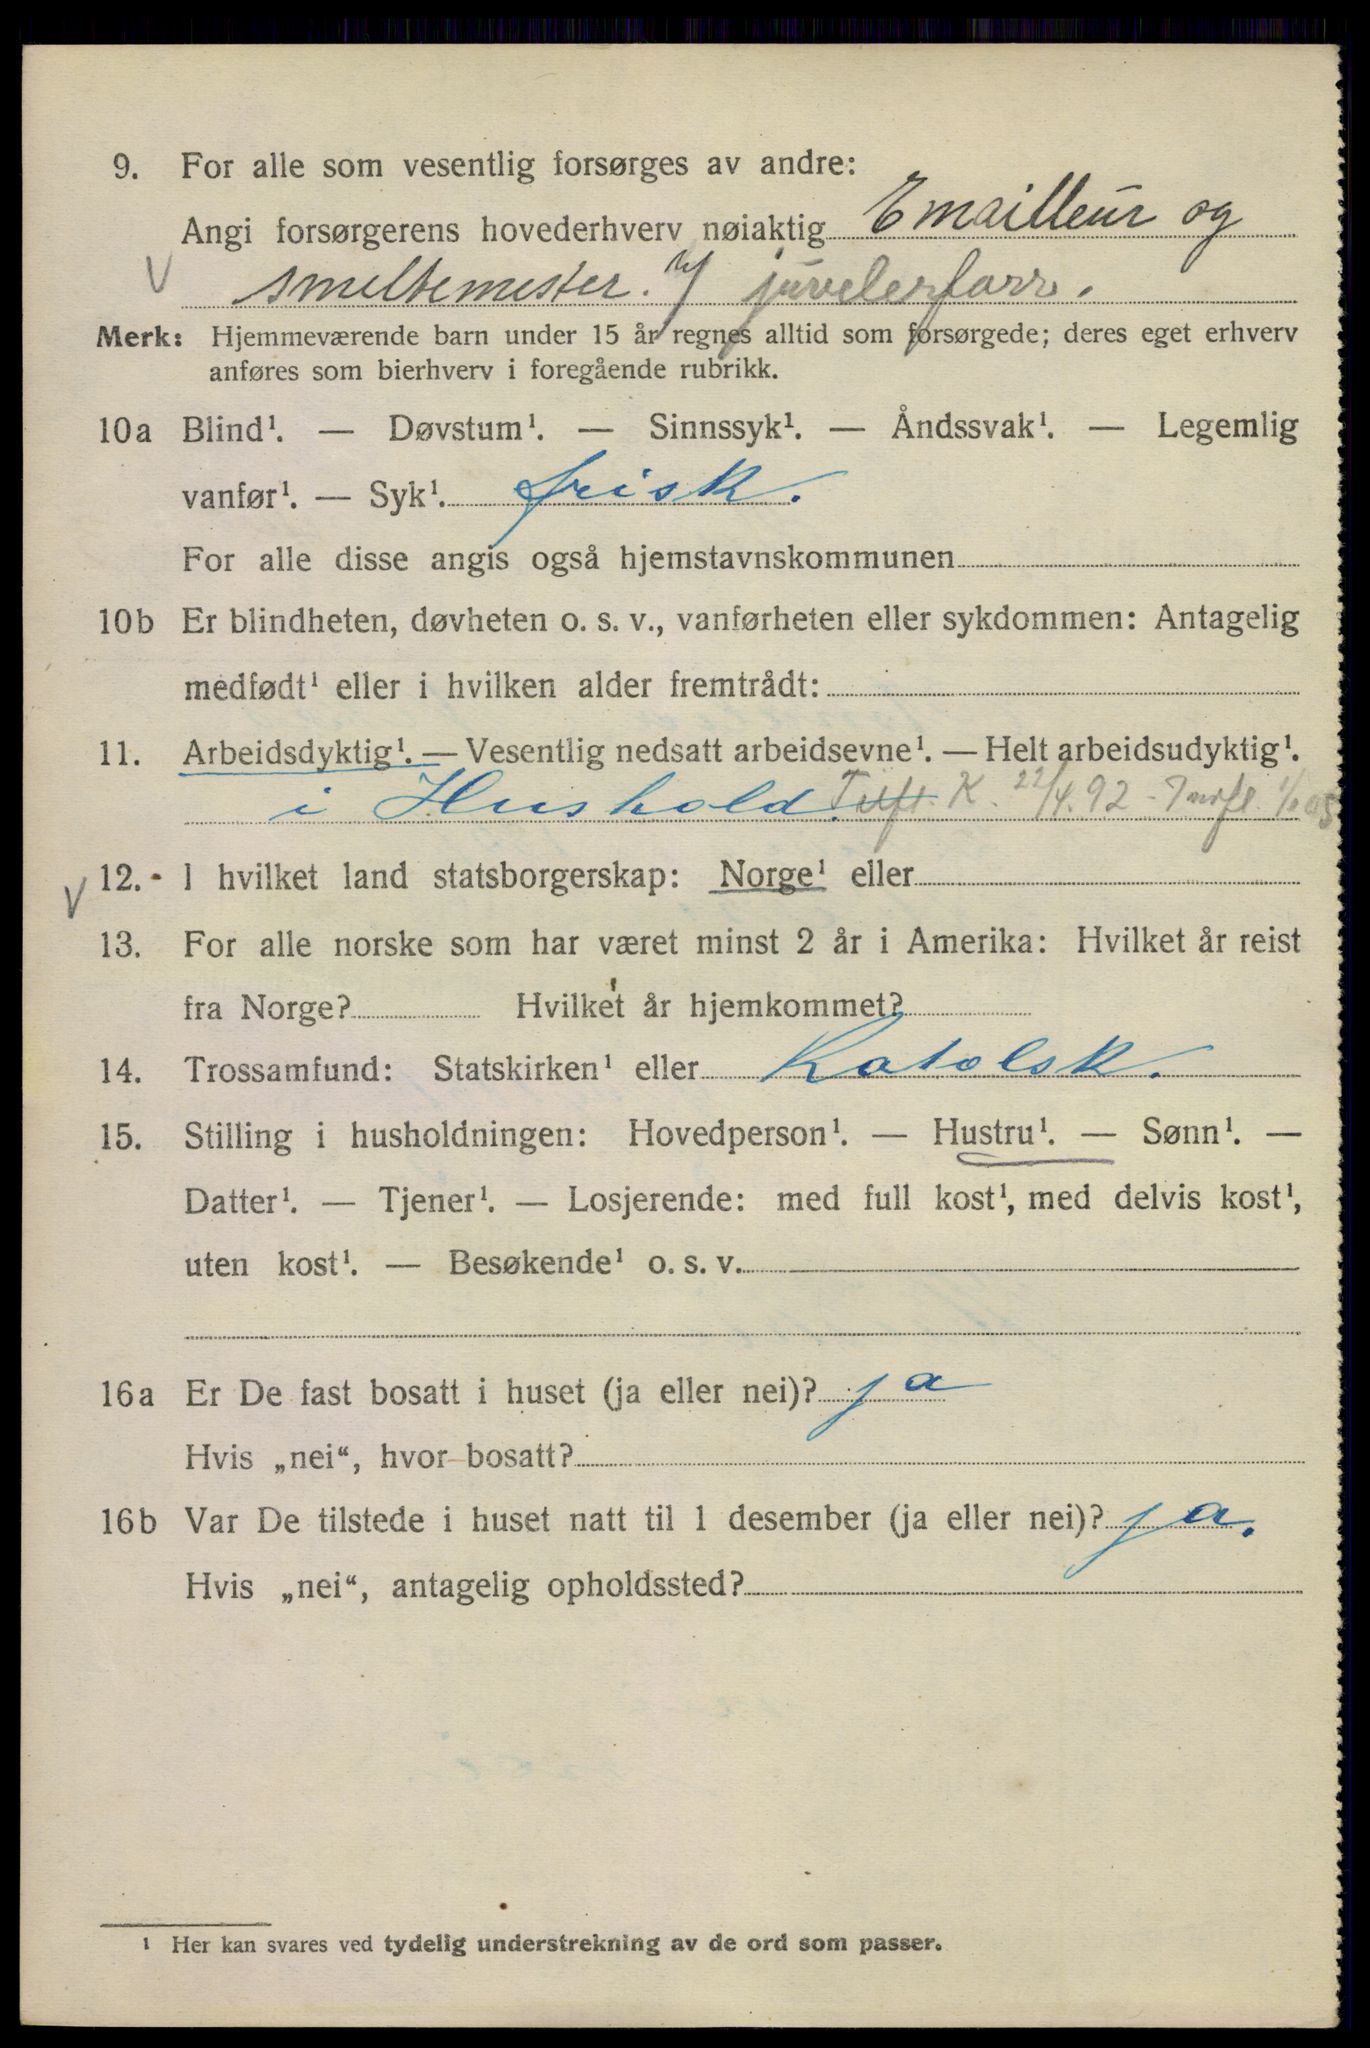 9. For alle som vesentlig forsørges av andre:
Angi forsørgerens hovederhverv nøiaktig Emailleur og
V smeltemester. i/ juvelerforr.
Merk: Hjemmeværende barn under 15 år regnes alltid som forsørgede; deres eget erhverv
anføres som bierhverv i foregående rubrikk.
10a Blind¹. — Døvstum¹. — Sinnssyk¹. — Åndssvak¹. — Legemlig
vanfør¹. — Syk¹. frisk.
For alle disse angis også hjemstavnskommunen
10b Er blindheten, døvheten o. s. v., vanførheten eller sykdommen: Antagelig
medfødt¹ eller i hvilken alder fremtrådt:
11. Arbeidsdyktig¹. — Vesentlig nedsatt arbeidsevne¹. — Helt arbeidsudyktig¹.
i Hushold. Tilfl. K. 22/4.92 - Innfl. 05
V 12. I hvilket land statsborgerskap: Norge¹ eller
13. For alle norske som har været minst 2 år i Amerika: Hvilket år reist
fra Norge? Hvilket år hjemkommet?
14. Trossamfund: Statskirken¹ eller Katolsk.
15. Stilling i husholdningen: Hovedperson¹. — Hustru¹. — Sønn¹. —
Datter¹. — Tjener¹. — Losjerende: med full kost¹, med delvis kost¹,
uten kost¹. — Besøkende¹ o. s. v.
16a Er De fast bosatt i huset (ja eller nei)? ja
Hvis „nei“, hvor bosatt?
16b Var De tilstede i huset natt til 1 desember (ja eller nei)? ja.
Hvis „nei“, antagelig opholdssted?
¹ Her kan svares ved tydelig understrekning av de ord som passer.